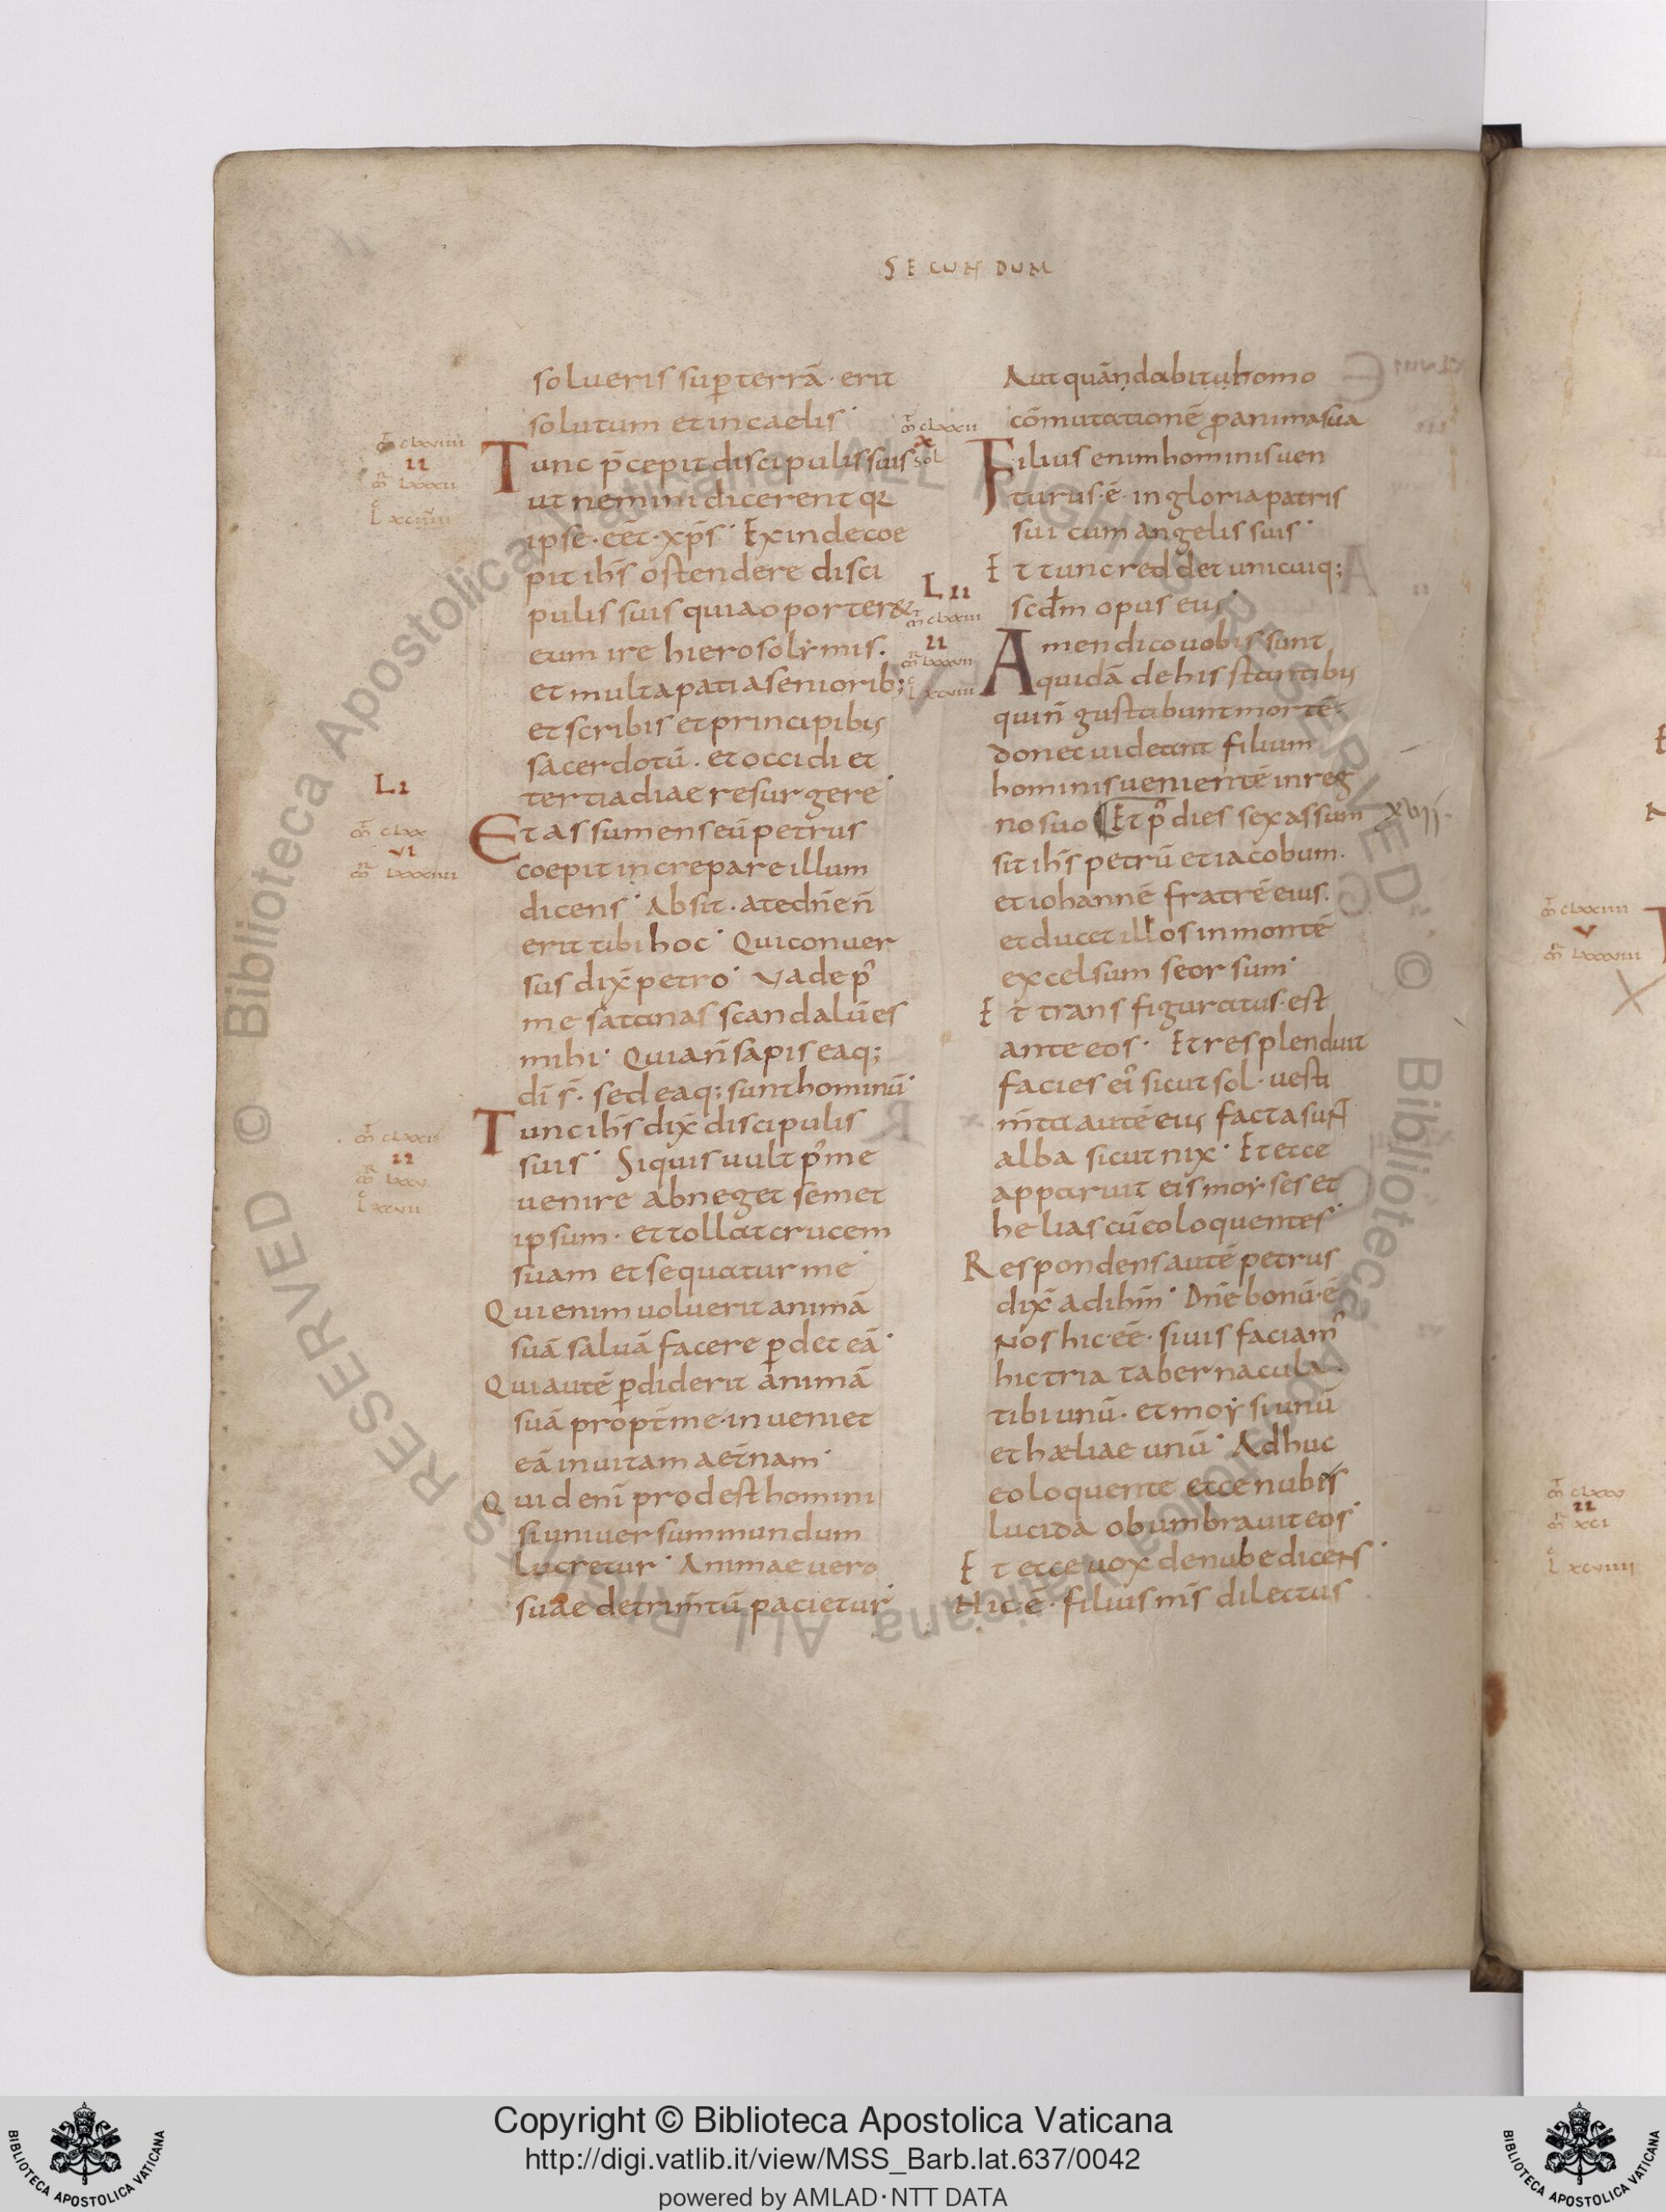 SECUNDUM
solueris sup terrā · erit
solutum et in caelis
Tunc p̄cepit discipulis suis
ut nemini dicerent qꝛ
ipse · eēt · xp̄s · Exinde coe
pit ih̄s ostendere disci
pulis suis quia oporter&
eum ire hierosolymis .
et multa pati a seniorib;
et scribis et principib;
sacerdotū . et occidi et
tertia diae resurgere
LI
Et assumens eū petrus
coepit increpare illum
dicens · Absit · a te dn̄e n̄
erit tibi hoc · Qui conuer
sus dix̄ petro · Vade p᾿
me satanas scandalū es
mihi · Quia n̄ sapis ea q;
dī s̄ · sed ea q; sunt hominū ·
Tunc ih̄s dix̄ discipulis
suis · Si quis uult p᾿ me
uenire abneget semet
ipsum · et tollat crucem
suam et sequatur me
Qui enim uoluerit animā
suā saluā facere ꝑdet eā ·
Qui autē ꝑdiderit animā
suā propt̄ me · inueniet
eā in uitam aet̄nam ·
Quid enī prodest homini
si uniuersum mundum
lucretur · Animae uero
suae detrim̄tū pacietur
Aut quān dabit ụ homo
cōmutationē ꝓ anima sua
Filius enim hominis uen
turus · ē · in gloria patris
sui cum angelis suis ·
Et tunc reddet unicuiq;
scd̄m opus eius
LII
Amen dico uobis sunt
quidā de his stantib;
qui n̄ gustabunt mortē ·
donec uideant filium
hominis uenientē in reg
no suo Et p᾿ dies sex assum xvij.
sit ih̄s petrū et iacobum ·
et iohannē fratrē eius .
et ducet illos in montē
excelsum seorsum ·
Et transfiguratus · est
ante eos · Et resplenduit
facies ei᾿ sicut sol · uesti
m̄ta autē eius facta sunt
alba sicut nix · Et ecce
apparuit eis moyses et
helias cū eo loquentes ·
Respondens autē petrus
dix̄ ad ih̄m · Dn̄e bonū · ē
nos hic · eē · si uis faciam᾿
hic tria tabernacula .
tibi unū · et moysi unū
et hæliae unū · Adhuc
eo loquente ecce nubis
lucida obumbrauit eos ·
Et ecce uox de nube dicens ·
Hic · ē · filius m̄s dilectus
Copyright © Biblioteca Apostolica Vaticana
http://digi.vatlib.it/view/MSS_Barb.lat.637/0042
powered by AMLAD·NTT DATA
BIBLIOTECA APOSTOLICA VATICANA
BIBLIOTECA APOSTOLICA VATICANA